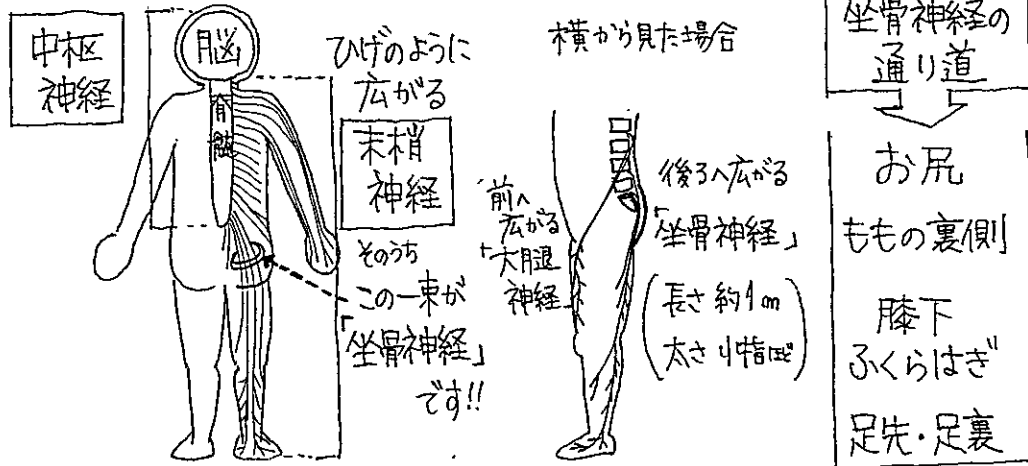 中枢
神経
脳
脊
髄
ひげのように
広がる
末梢
神経
そのうち
この一束が
「坐骨神経」
です!!
横から見た場合
前へ
広がる
「大腿
神経」
後ろへ広がる
「坐骨神経」
(長さ 約1m
太さ 小指ほど)
坐骨神経の
通り道
お尻
ももの裏側
膝下
ふくらはぎ
足先・足裏